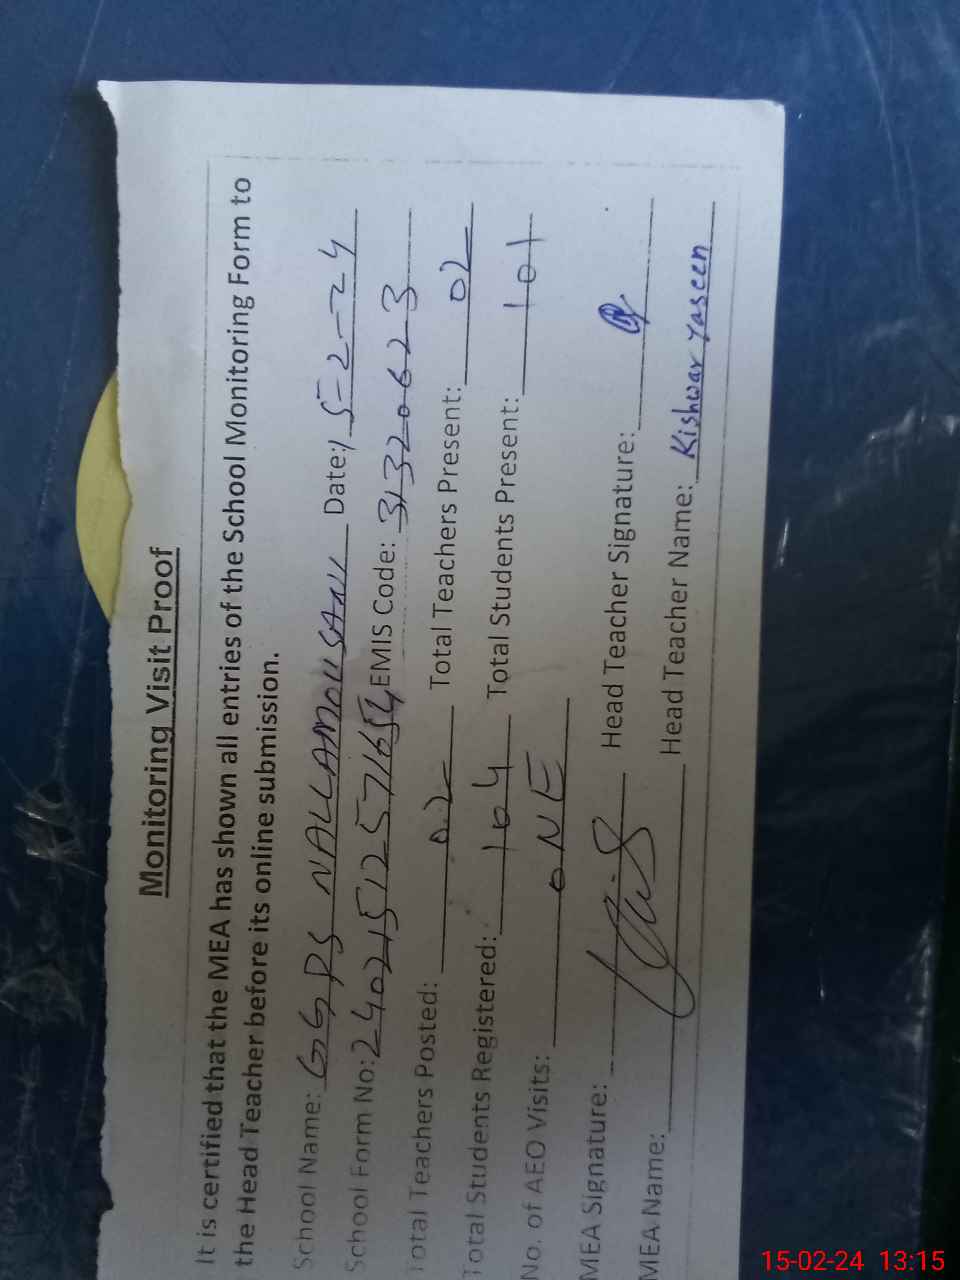 Monitoring Visit Proof
It is certified that the MEA has shown all entries of the School Monitoring Form to
the Head Teacher before its online submission.
School Name: GGPS Date: 15-2-24
School Form No: 240215125571654 EMIS Code: 31320623
Total Teachers Posted: 02 Total Teachers Present: 02
Total Students Registered: 104 Total Students Present: 101
No. of AEO Visits: ONE
MEA Signature: Head Teacher Signature:
MEA Name: Head Teacher Name: Kishwar Yaseen
15-02-24 13:15